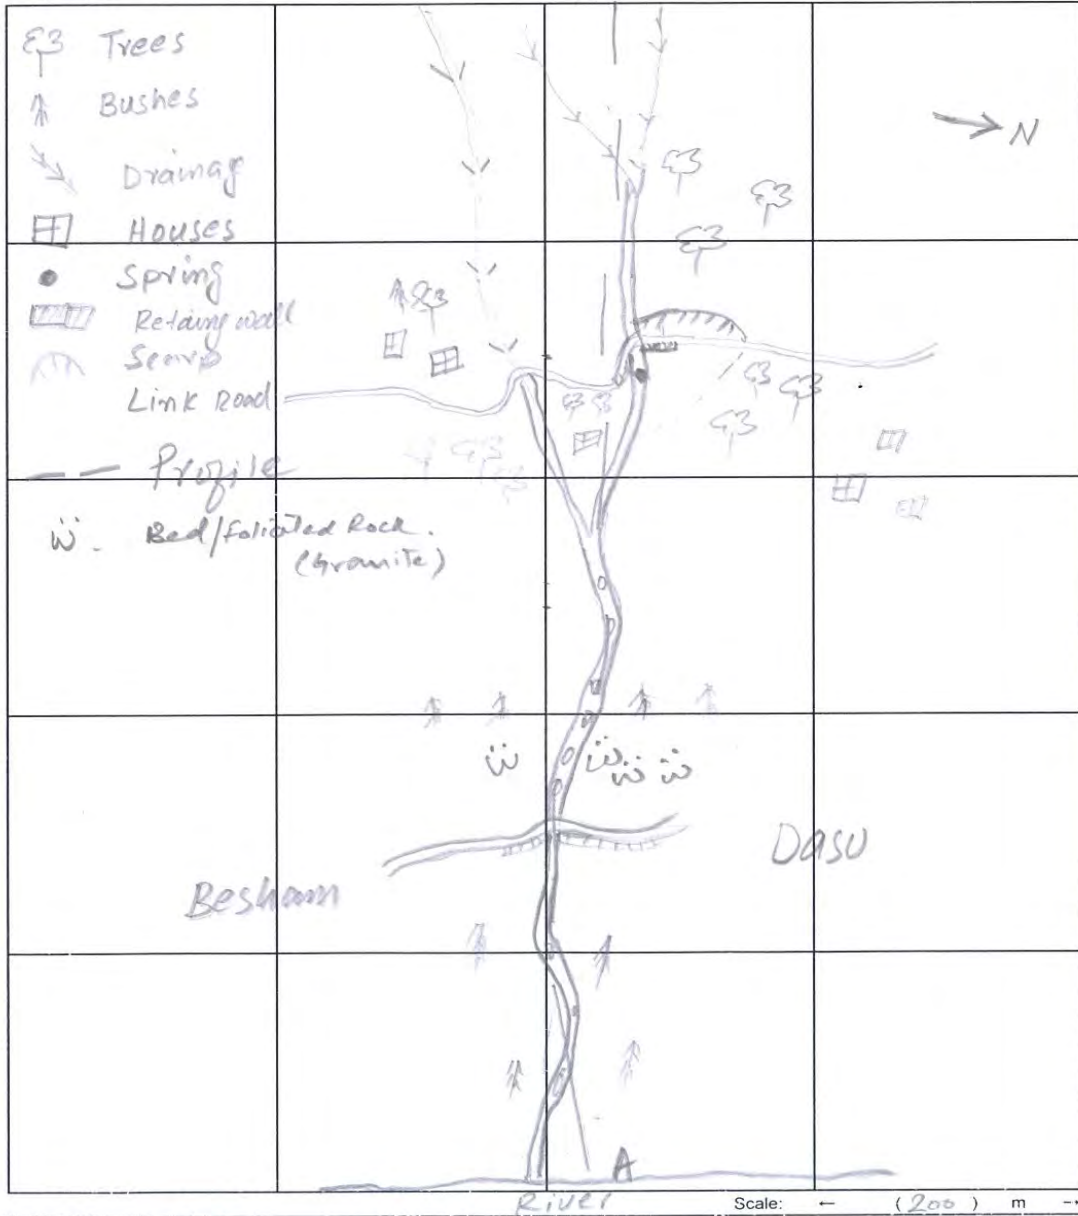 Trees
Bushes
N
Drainag
Houses
Spring
Retaing wall
Scarp
Link Road
Profile
Bed/foliated Rock.
(Granite)
Dasu
Besham
A
River
Scale: ← (200) m →